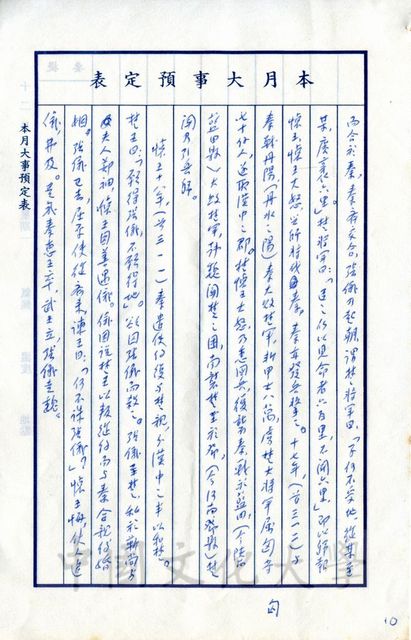 本月大事預定表
而合於秦,秦齊交合,張儀乃起朝,謂楚將軍曰:「子何不受地,從某至
某,廣袤六里。」楚將軍曰:「臣之所以見命者六百里,不聞六里。」即以歸報
懷王,懷王大怒,興師將伐秦,秦亦發兵擊之。十七年,(前三一二)與
秦戰丹陽,(丹水之陽)秦大敗楚軍,斬甲士八萬,虜楚大將軍屈匄等
七十餘人,遂取漢中之郡。楚懷王大怒,乃悉國兵復襲秦,戰於藍田(今陝西
藍田縣)大敗楚軍,韓魏聞楚之困,南襲楚至於鄧(今河南鄧縣)楚
聞乃引兵歸。
懷王十八年,(前三一一)秦遣使約復與楚親,分漢中之半以和楚。
楚王曰:「願得張儀,不願得地。」欲囚張儀而殺之。張儀至楚,私於靳尚
及夫人鄭袖,懷王因善遇儀。儀因說楚王以叛從約而與秦合親約婚
姻。張儀已去,屈原使從齊來,諫王曰:「何不誅張儀?」懷王悔,使人追
儀,弗及。是歲秦惠王卒,武王立,張儀走魏。
本月大事預定表
匄
10
中國文化大學